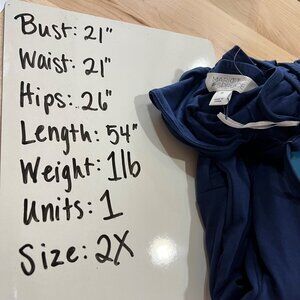 Bust: 21"
Waist: 21"
Hips: 26"
Length: 54"
Weight: 1lb
Units: 1
Size: 2X
MARKET
& SPRUCE